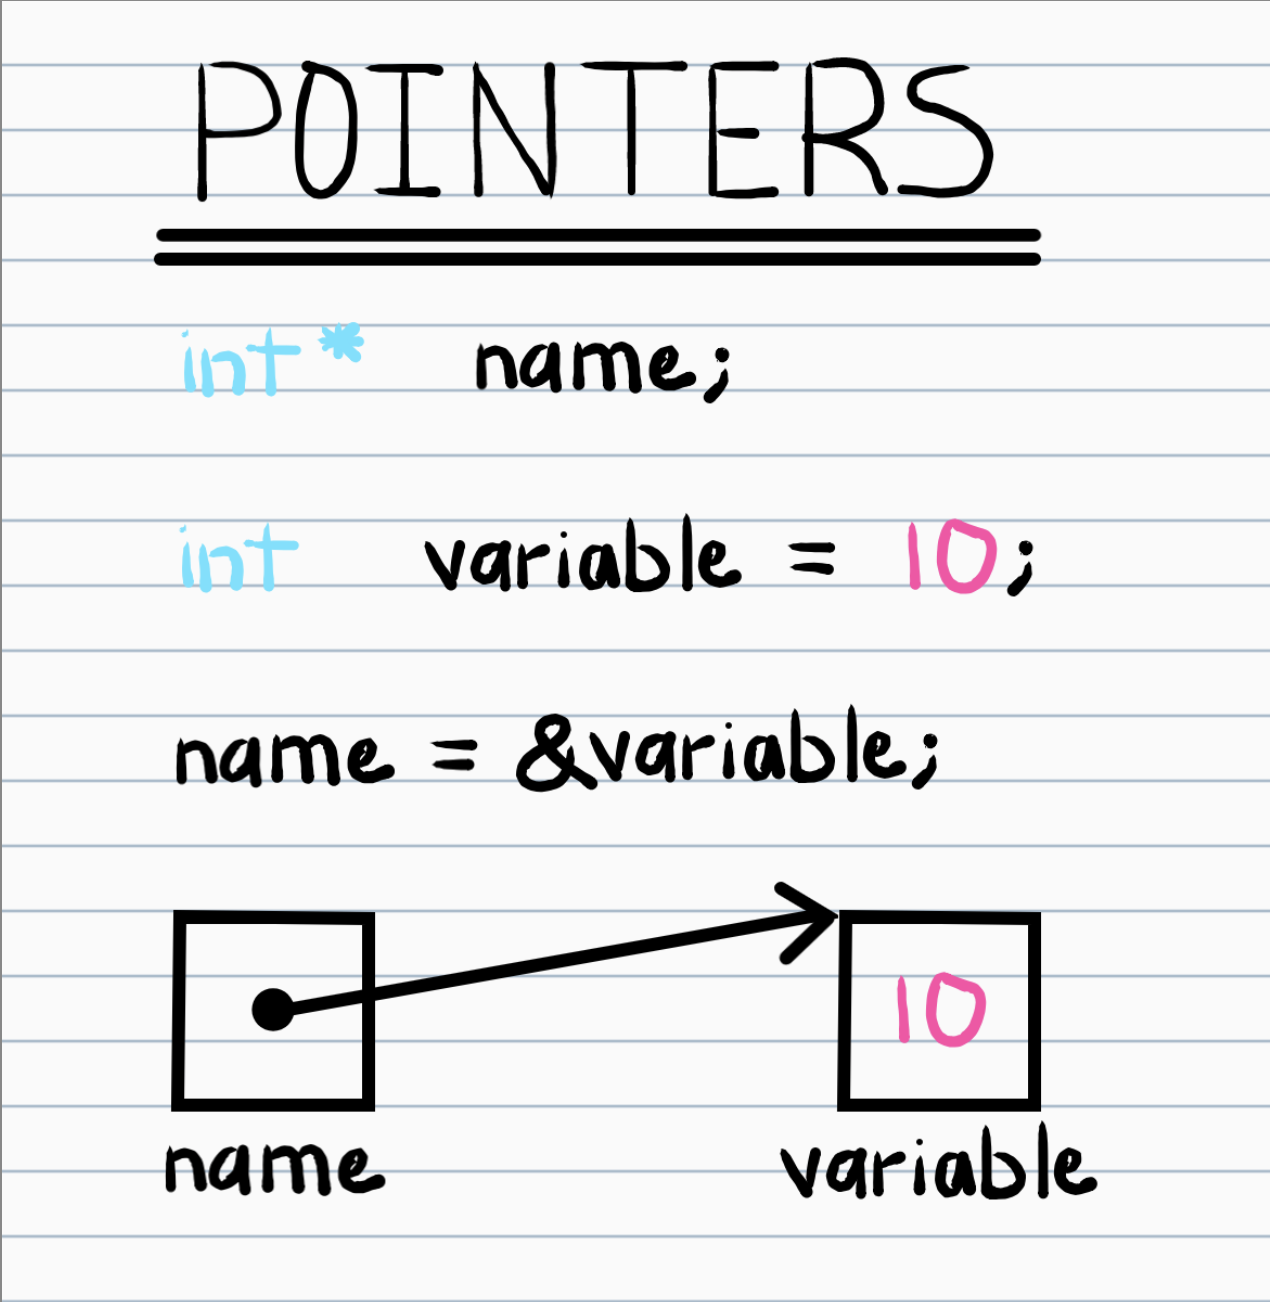 POINTERS
int* name;
int variable = 10;
name = &variable;
10
name variable